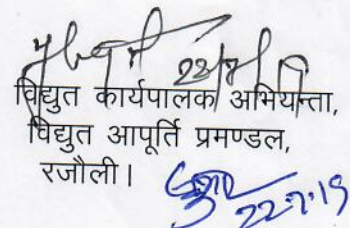 22/7/19
विद्युत कार्यपालक अभियन्ता,
विद्युत आपूर्ति प्रमण्डल,
रजौली।
22.7.19